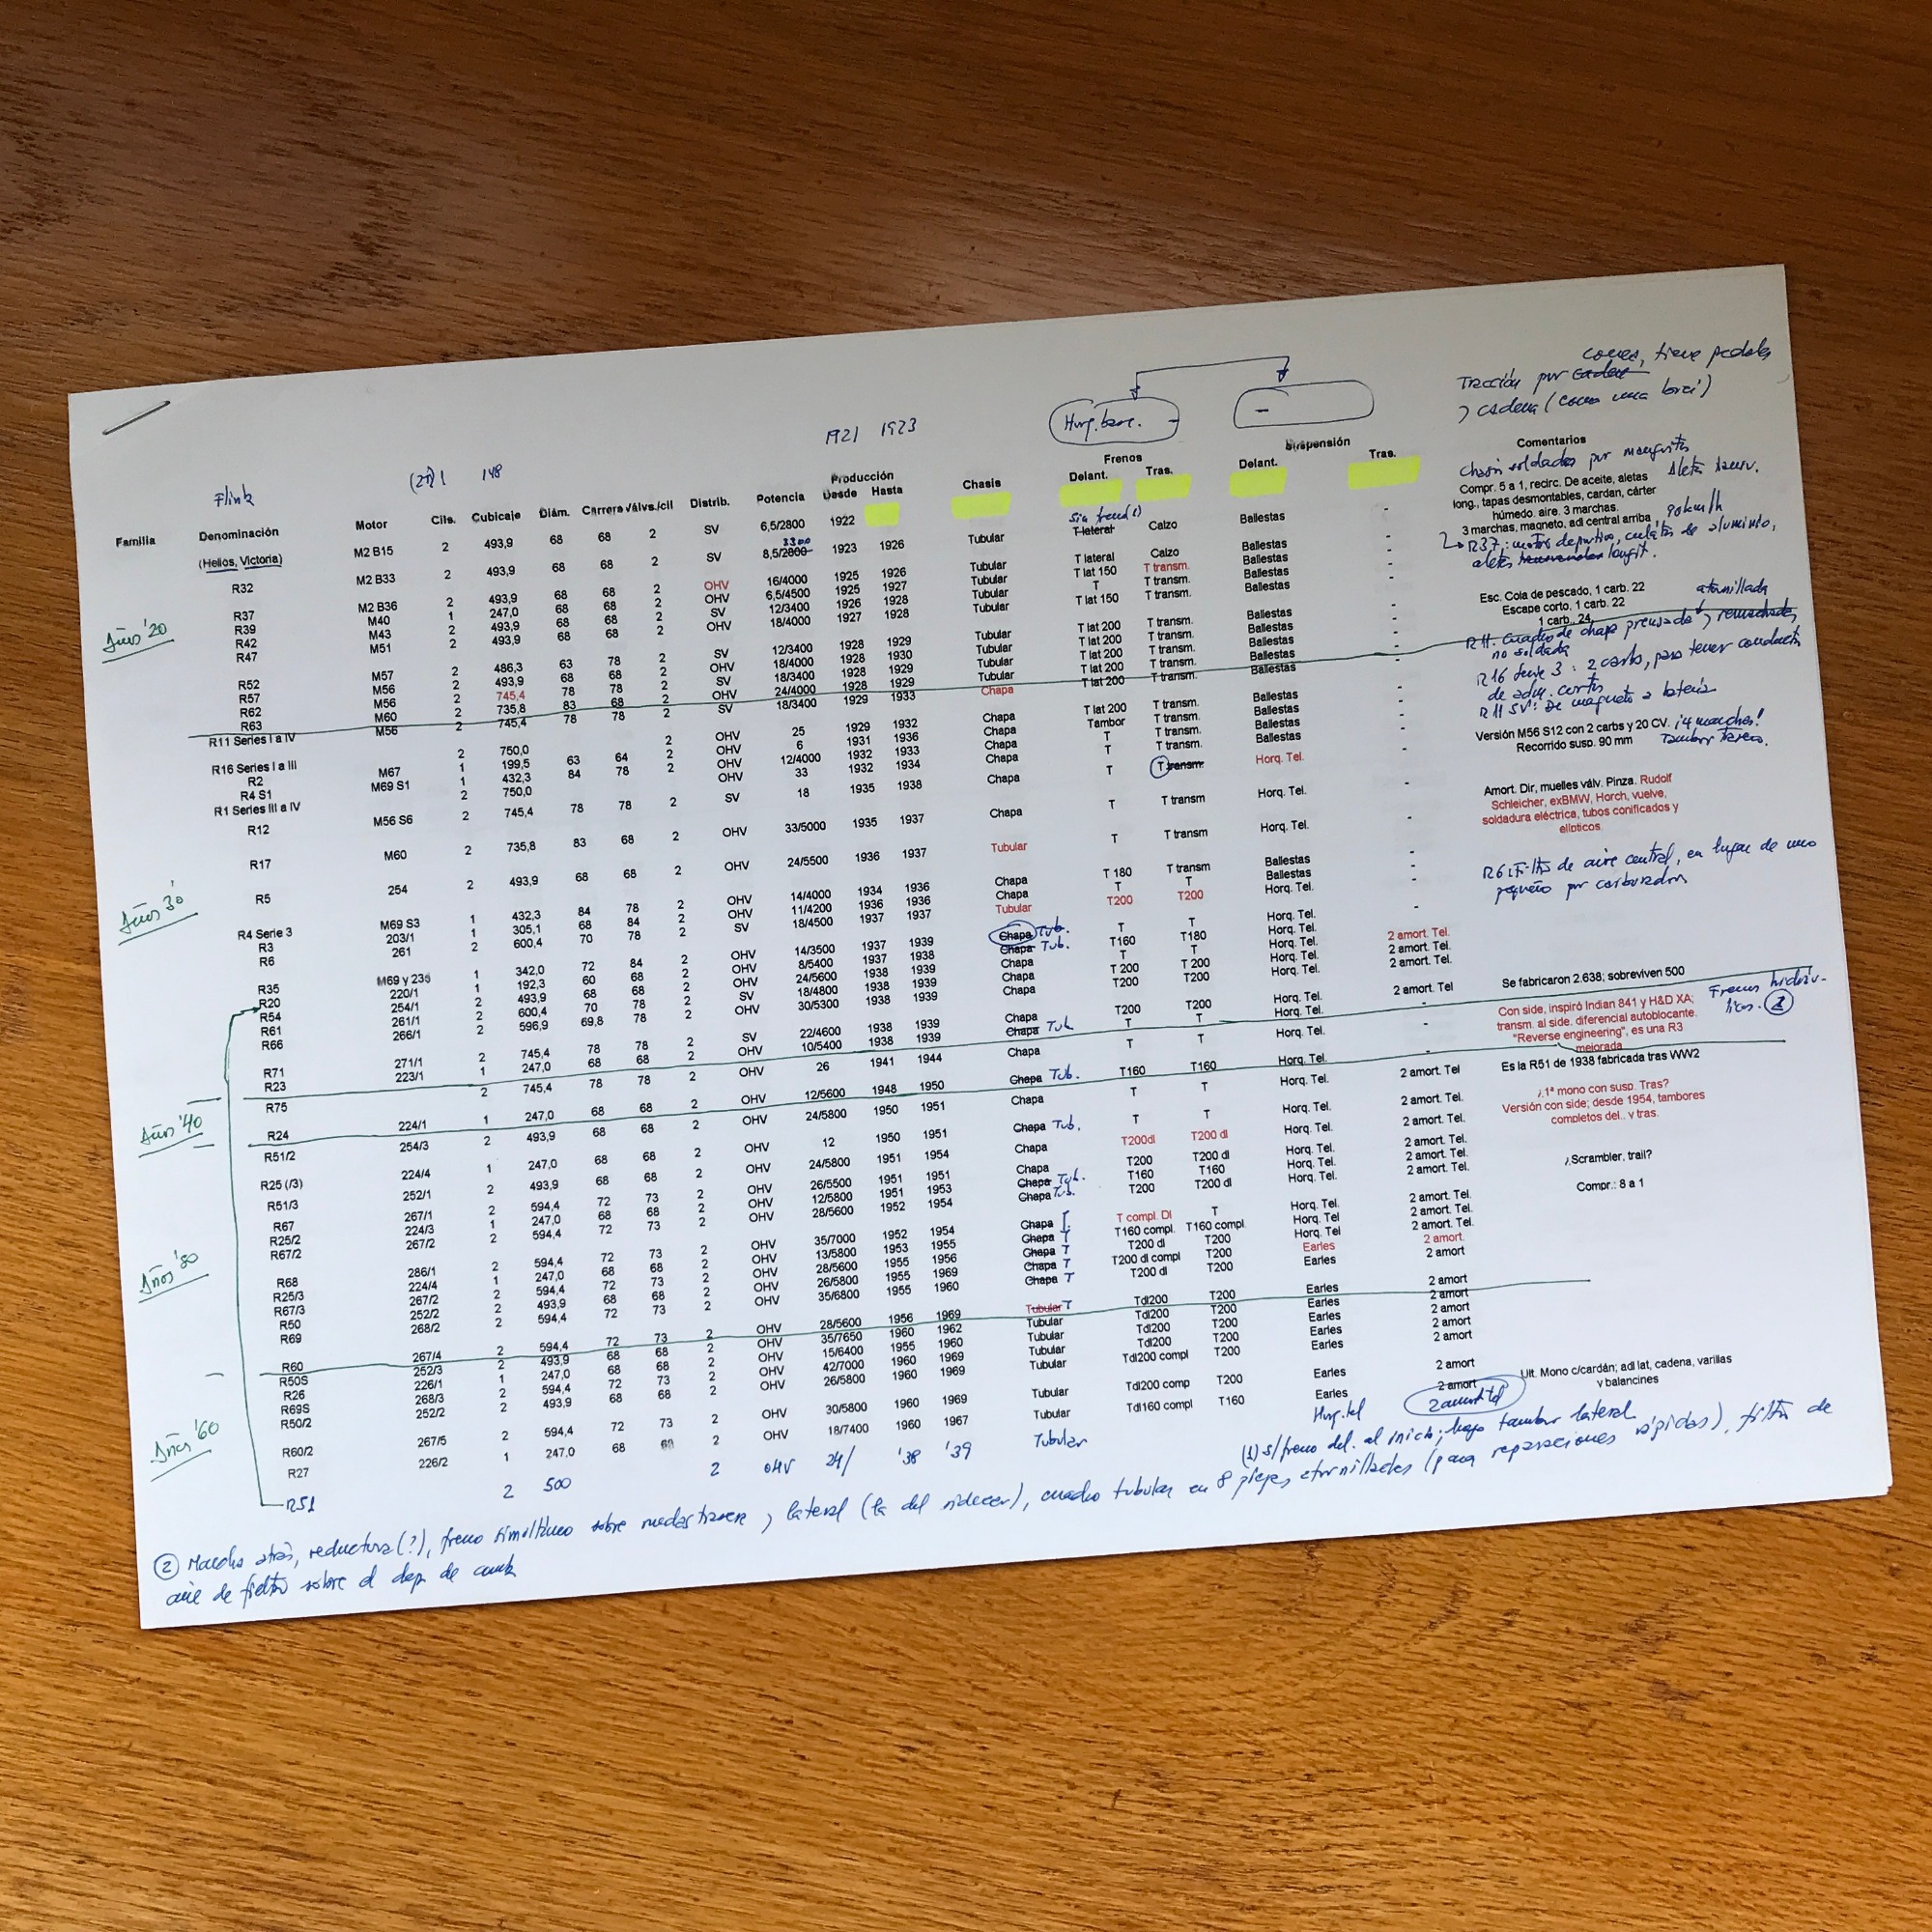 correa, tiene pedales
Tracción por cadena
y cadena (como una bici)
1921 1923
Horq. basc. -
-
Flink (2T) 1 148
Producción Frenos Suspensión Comentarios
Familia Denominación Motor Cils. Cubicaje Diám. Carrera Válvs./cil Distrib. Potencia Desde Hasta Chasis Delant. Tras. Delant. Tras.
Chasis soldados por manguitos
Aletas transv.
Compr. 5 a 1, recirc. De aceite, aletas
long., tapas desmontables, cardan, cárter
húmedo. aire. 3 marchas.
3 marchas, magneto, adl central arriba
90km/h
R37: motor deportivo, culatas de aluminio,
aletas longit.
sin freno (1)
(Helios, Victoria) M2 B15 2 493,9 68 68 2 SV 6,5/2800 1922 Tubular T lateral Calzo Ballestas -
3300
R32 M2 B33 2 493,9 68 68 2 SV 8,5/2800 1923 1926 Tubular T lateral Calzo Ballestas -
R37 M2 B36 2 493,9 68 68 2 OHV 16/4000 1925 1926 Tubular T lat 150 T transm. Ballestas -
R39 M40 1 247,0 68 68 2 OHV 6,5/4500 1925 1927 Tubular T T transm. Ballestas -
R42 M43 2 493,9 68 68 2 SV 12/3400 1926 1928 Tubular T lat 150 T transm. Ballestas - Esc. Cola de pescado, 1 carb. 22
Años '20
R47 M51 2 493,9 68 68 2 OHV 18/4000 1927 1928 Escape corto. 1 carb. 22
1 carb. 24
R52 M57 2 486,3 63 78 2 SV 12/3400 1928 1929 Tubular T lat 200 T transm. Ballestas -
R57 M56 2 493,9 68 68 2 OHV 18/4000 1928 1930 Tubular T lat 200 T transm. Ballestas -
R62 M56 2 745,4 78 78 2 SV 18/3400 1928 1929 Tubular T lat 200 T transm. Ballestas -
R63 M60 2 735,8 83 68 2 OHV 24/4000 1928 1929 Tubular T lat 200 T transm. Ballestas -
R11 Series I a IV M56 2 745,4 78 78 2 SV 18/3400 1929 1933 Chapa
atornillada
R11. Cuadro de chapa prensada y remachada,
no soldada
R16 serie 3: 2 carbs, para tener conductos
de adm. cortos
R11 SV: De magneto a batería
R16 Series I a III 2 750,0 2 OHV 25 1929 1932 Chapa T lat 200 T transm. Ballestas -
R2 M67 1 199,5 63 64 2 OHV 6 1931 1936 Chapa Tambor T transm. Ballestas -
R4 S1 M69 S1 1 432,3 84 78 2 OHV 12/4000 1932 1933 Chapa T T transm. Ballestas -
R1 Series III a IV 2 750,0 OHV 33 1932 1934 Chapa T T transm. Ballestas -
R12 M56 S6 2 745,4 78 78 2 SV 18 1935 1938 Chapa T T transm Horq. Tel. - Versión M56 S12 con 2 carbs y 20 CV. ¡4 marchas!
Recorrido susp. 90 mm Tambor trasero.
R17 M60 2 735,8 83 68 2 OHV 33/5000 1935 1937 Chapa T T transm Horq. Tel. -
R5 254 2 493,9 68 68 2 OHV 24/5500 1936 1937 Tubular T T transm Horq. Tel. - Amort. Dir, muelles válv. Pinza. Rudolf
Schleicher, exBMW, Horch, vuelve,
soldadura eléctrica, tubos conificados y
elípticos
Años 30
R4 Serie 3 M69 S3 1 432,3 84 78 2 OHV 14/4000 1934 1936 Chapa T 180 T transm Ballestas
R3 203/1 1 305,1 68 84 2 OHV 11/4200 1936 1936 Chapa T T Ballestas
R6 261 2 600,4 70 78 2 SV 18/4500 1937 1937 Tubular T200 T200 Horq. Tel. -
R6: Filtro de aire central, en lugar de uno
pequeño por carburador
R35 M69 y 235 1 342,0 72 84 2 OHV 14/3500 1937 1939 Chapa Tub. T T Horq. Tel. -
R20 220/1 1 192,3 60 68 2 OHV 8/5400 1937 1938 Chapa Tub. T160 T180 Horq. Tel. -
R54 254/1 2 493,9 68 68 2 OHV 24/5600 1938 1939 Chapa T T Horq. Tel. 2 amort. Tel.
R61 261/1 2 600,4 70 78 2 SV 18/4800 1938 1939 Chapa T 200 T 200 Horq. Tel. 2 amort. Tel.
R66 266/1 2 596,9 69,8 78 2 OHV 30/5300 1938 1939 Chapa T200 T200 Horq. Tel. 2 amort. Tel.
R71 271/1 2 745,4 78 78 2 SV 22/4600 1938 1939 Chapa T200 T200 Horq. Tel. 2 amort. Tel Se fabricaron 2.638; sobreviven 500
R23 223/1 1 247,0 68 68 2 OHV 10/5400 1938 1939 Chapa Tub. T T Horq. Tel. -
Años '40
R75 2 745,4 78 78 2 OHV 26 1941 1944 Chapa T T Horq. Tel. - Con side, inspiró Indian 841 y H&D XA;
transm. al side, diferencial autoblocante.
"Reverse engineering", es una R3
mejorada
Frenos hidráu-
licos. (2)
R24 224/1 1 247,0 68 68 2 OHV 12/5600 1948 1950 Chapa Tub. T160 T160 Horq. Tel. -
R51/2 254/3 2 493,9 68 68 2 OHV 24/5800 1950 1951 Chapa T T Horq. Tel. 2 amort. Tel Es la R51 de 1938 fabricada tras WW2
R25 (/3) 224/4 1 247,0 68 68 2 OHV 12 1950 1951 Chapa Tub. T T Horq. Tel. 2 amort. Tel. ¿1ª mono con susp. Tras?
R51/3 252/1 2 493,9 68 68 2 OHV 24/5800 1951 1954 Chapa T200dl T200 dl Horq. Tel. 2 amort. Tel. Versión con side; desde 1954, tambores
completos del.. y tras.
Años '50
R67 267/1 2 594,4 72 73 2 OHV 26/5500 1951 1951 Chapa T200 T200 dl Horq. Tel. 2 amort. Tel.
R25/2 224/3 1 247,0 68 68 2 OHV 12/5800 1951 1953 Chapa Tub. T160 T160 Horq. Tel. 2 amort. Tel.
R67/2 267/2 2 594,4 72 73 2 OHV 28/5600 1952 1954 Chapa Tub. T200 T200 dl Horq. Tel. 2 amort. Tel.
R68 286/1 2 594,4 72 73 2 OHV 35/7000 1952 1954 Chapa T. T compl. Dl T Horq. Tel. 2 amort. Tel. ¿Scrambler, trail?
R25/3 224/4 1 247,0 68 68 2 OHV 13/5800 1953 1955 Chapa T T160 compl. T160 compl. Horq. Tel 2 amort. Tel.
R67/3 267/2 2 594,4 72 73 2 OHV 28/5600 1955 1956 Chapa T T200 dl T200 Horq. Tel 2 amort. Tel.
R50 252/2 2 493,9 68 68 2 OHV 26/5800 1955 1969 Chapa T T200 dl compl T200 Earles 2 amort.
R69 268/2 2 594,4 72 73 2 OHV 35/6800 1955 1960 Chapa T T200 dl T200 Earles 2 amort
Compr.: 8 a 1
R60 267/4 2 594,4 72 73 2 OHV 28/5600 1956 1969 Tubular T Tdl200 T200 Earles 2 amort
R50S 252/3 2 493,9 68 68 2 OHV 35/7650 1960 1962 Tubular Tdl200 T200 Earles 2 amort
R26 226/1 1 247,0 68 68 2 OHV 15/6400 1955 1960 Tubular Tdl200 T200 Earles 2 amort
R69S 268/3 2 594,4 72 73 2 OHV 42/7000 1960 1969 Tubular Tdl200 T200 Earles 2 amort
R50/2 252/2 2 493,9 68 68 2 OHV 26/5800 1960 1969 Tubular Tdl200 compl T200 Earles 2 amort
Años '60
R60/2 267/5 2 594,4 72 73 2 OHV 30/5800 1960 1969 Tubular Tdl200 comp T200 Earles 2 amort
R27 226/2 1 247,0 68 68 2 OHV 18/7400 1960 1967 Tubular Tdl160 compl T160 Earles 2 amort Ult. Mono c/cardán; adl lat, cadena, varillas
y balancines
R51 2 500 2 OHV 24/ '38 '39 Tubular Horq. tel 2 amort tel
(1) s/freno del. al inicio; luego tambor lateral
(2) Marcha atrás, reductora (?), freno simultáneo sobre ruedas trasera y lateral (la del sidecar), cuadro tubular en 8 piezas atornilladas (para reparaciones rápidas), filtro de
aire de fieltro sobre el dep de comb